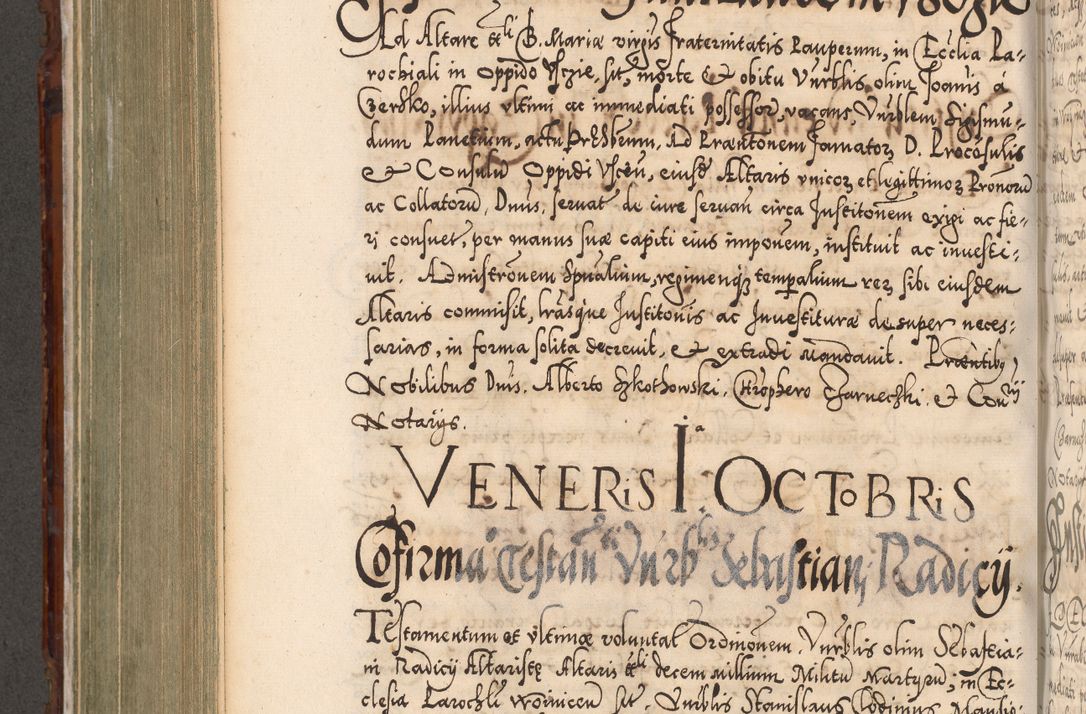 Ad Altare ttli B. Mariæ virgis fraternitatis Pauperum, in Ecclia Pa-
rochiali in oppido Vscie, sit, morte & obitu Vnrblis olim Joanis á
Czersko, illius vltimi ac immediati possessor, vacans, Vnrblem Sigismu-
dum Panetium, actu Prsbrum, Ad Præntonem famatoꝝ D. Procosulis
& Consulu Oppidi Vscen, eiusd Altaris vnicoꝝ et legittimoꝝ Pronorū
ac Collatorū, Dnus, seruat de iure seruan circa Institonem exigi ac fie-
ri consuet, per manus suæ capiti eius imponem, instituit ac inuesti-
uit. Admistronem Spualium, regimenqꝫ temporalium reꝝ sibi eiusdem
Altaris commisit, lrasque Institonis ac Inuestituræ desuper neces-
sarias, in forma solita decreuit, & extradi mandauit. Præntibꝫ
Nobilibus Dnis. Alberto Szkothowski, Chrophero Czarnechki. & Conrij
Notarijs.
VENERIS Iª. OCTOBRIS
Cofirmaº Testan ti Vnrblis Sebastiani Radicij.
Testamentum et vltimæ voluntat Ordinonem, Vnrblis olim Sebastia-
ni Radicij Altaristę Altaris ttli decem millium Militū Martyrū, in Ec-
clesia Parochli Woinicen sit, Vnrblis Stanislaus Clodinius Mansio-